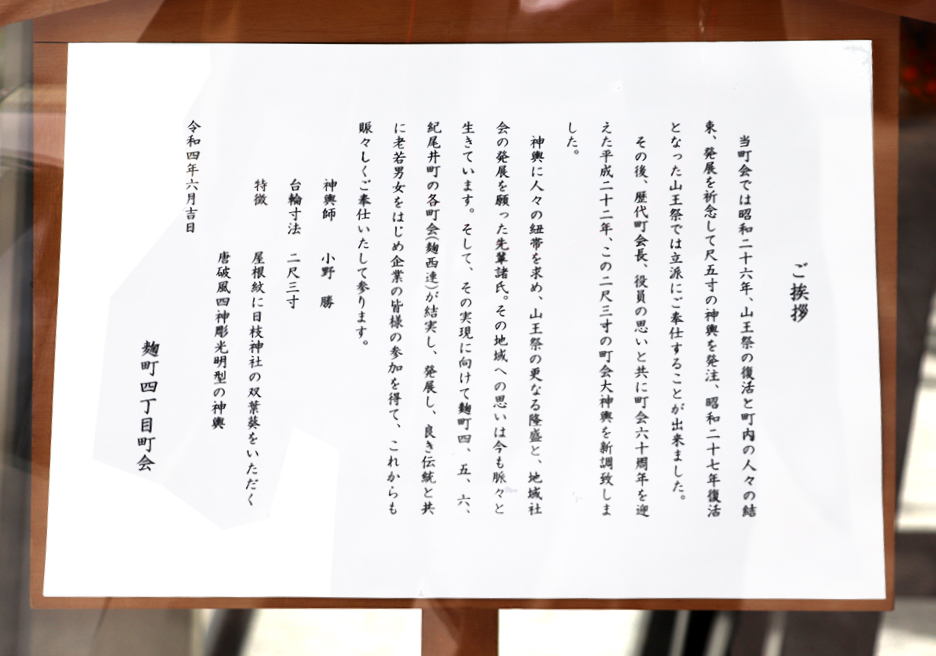 ご挨拶
当町会では昭和二十六年、山王祭の復活と町内の人々の結
束、発展を祈念して尺五寸の神輿を発注、昭和二十七年復活
となった山王祭では立派にご奉仕することが出来ました。
その後、歴代町会長、役員の思いと共に町会六十周年を迎
えた平成二十二年、この二尺三寸の町会大神輿を新調致しま
した。
神輿に人々の紐帯を求め、山王祭の更なる隆盛と、地域社
会の発展を願った先輩諸氏。その地域への思いは今も脈々と
生きています。そして、その実現に向けて麹町四、五、六、
紀尾井町の各町会(麹西連)が結実し、発展し、良き伝統と共
に老若男女をはじめ企業の皆様の参加を得て、これからも
賑々しくご奉仕いたして参ります。
神輿師 小野 勝
台輪寸法 二尺三寸
特徴 屋根紋に日枝神社の双葉葵をいただく
唐破風四神彫光明型の神輿
令和四年六月吉日
麹町四丁目町会